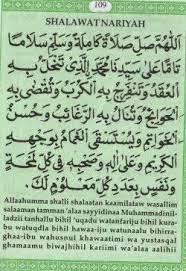 109
SHALAWAT NARIYAH
اَللّٰهُمَّ صَلِّ صَلَاةً كَامِلَةً وَسَلِّمْ سَلَامًا
تَامًّا عَلَى سَيِّدِنَا مُحَمَّدِ الَّذِيْ تَنْحَلُّ بِهِ
الْعُقَدُ وَتَنْفَرِجُ بِهِ الْكُرَبُ وَتُقْضٰى بِهِ
الْحَوَائِجُ وَتُنَالُ بِهِ الرَّغَائِبُ وَحُسْنُ
الْخَوَاتِمِ وَيُسْتَسْقَى الْغَمَامُ بِوَجْهِهِ
الْكَرِيْمِ وَعَلٰى اٰلِهِ وَصَحْبِهِ فِيْ كُلِّ لَمْحَةٍ
وَنَفَسٍ بِعَدَدِ كُلِّ مَعْلُوْمٍ لَكَ
Allaahumma shalli shalaatan kaamilataw wasallim
salaaman tamman 'alaa sayyidinaa Muhammadinil-
ladzii tanhallu bihil 'uqadu watanfariju bihil kura-
bu watuqdla bihil hawaa-iju watunaalu bihirra-
ghaa-ibu wahusnul khawaatimi wa yustasqal
ghamaamu biwajhihil kariimi wa'alaa aalihii